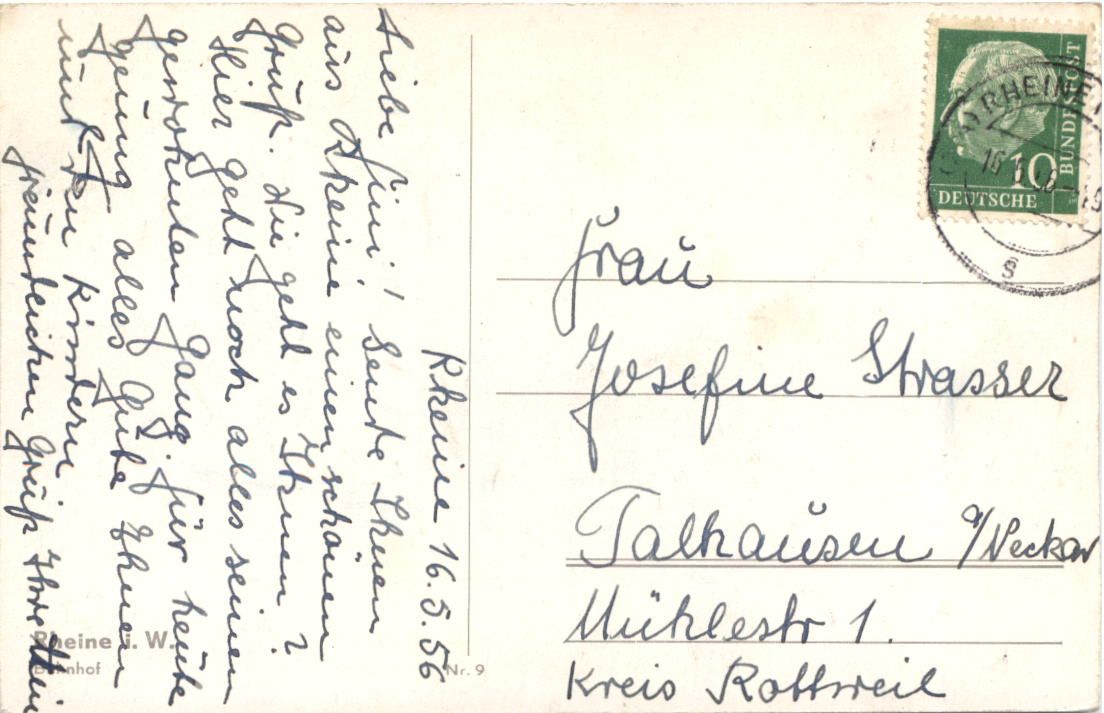 Rheine 16.5.56
Liebe Fini! Sende Ihnen
aus Rheine einen schönen
Gruß. Wie geht es Ihnen?
Hier geht noch alles seinen
gewohnten Gang. Für heute
genug alles Gute Ihnen
und den Kindern
freundlichen Gruß Ihre
Rheine i. W.
Bahnhof
Nr. 9
RHEINE
16
10
DEUTSCHE
BUNDESPOST
s
Frau
Josefine Strasser
Talhausen a/Neckar
Mühlestr 1.
Kreis Rottweil